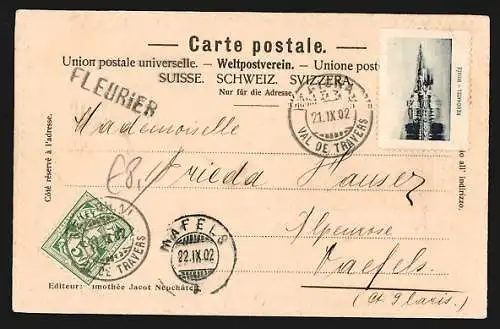 — Carte postale. —
Union postale universelle. – Weltpostverein. – Unione postale
SUISSE. SCHWEIZ. SVIZZERA.
Nur für die Adresse.
FLEURIER
21.IX.02
VAL DE TRAVERS
Côté réservé à l'adresse.
all' indirizzo.
Mademoiselle
68,
Frieda Hauser
Alpenrose
Naefels
(Ct Glaris.)
5
DE TRAVERS
NÄFELS
22.IX.02
Editeur: imothée Jacot Neuchâtel